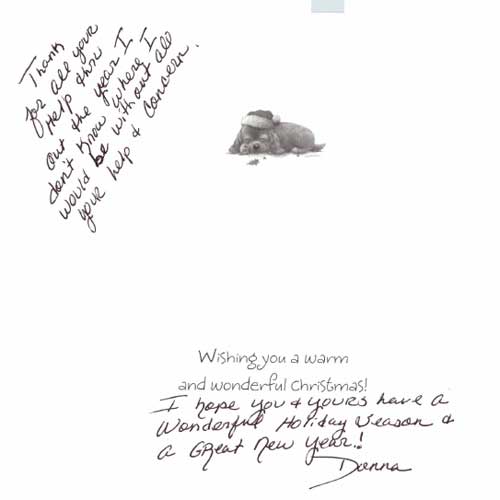 Thank
for all your
Help thru
out the year I
don't know where I
would be without all
your help & concern.
Wishing you a warm
and wonderful Christmas!
I hope you & yours have a
Wonderful Holiday Season &
a Great New Year.!
Donna